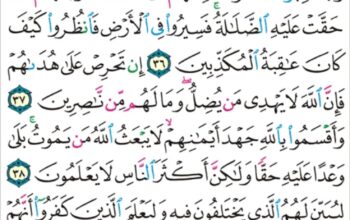 حَقَّتْ عَلَيْهِ ٱلضَّلَٰلَةُ ۚ فَسِيرُوا۟ فِى ٱلْأَرْضِ فَٱنظُرُوا۟ كَيْفَ
كَانَ عَٰقِبَةُ ٱلْمُكَذِّبِينَ ٣٦ إِن تَحْرِصْ عَلَىٰ هُدَىٰهُمْ
فَإِنَّ ٱللَّهَ لَا يَهْدِى مَن يُضِلُّ ۖ وَمَا لَهُم مِّن نَّٰصِرِينَ ٣٧
وَأَقْسَمُوا۟ بِٱللَّهِ جَهْدَ أَيْمَٰنِهِمْ ۙ لَا يَبْعَثُ ٱللَّهُ مَن يَمُوتُ ۚ بَلَىٰ
وَعْدًا عَلَيْهِ حَقًّا وَلَٰكِنَّ أَكْثَرَ ٱلنَّاسِ لَا يَعْلَمُونَ ٣٨
لِيُبَيِّنَ لَهُمُ ٱلَّذِى يَخْتَلِفُونَ فِيهِ وَلِيَعْلَمَ ٱلَّذِينَ كَفَرُوٓا۟ أَنَّهُمْ